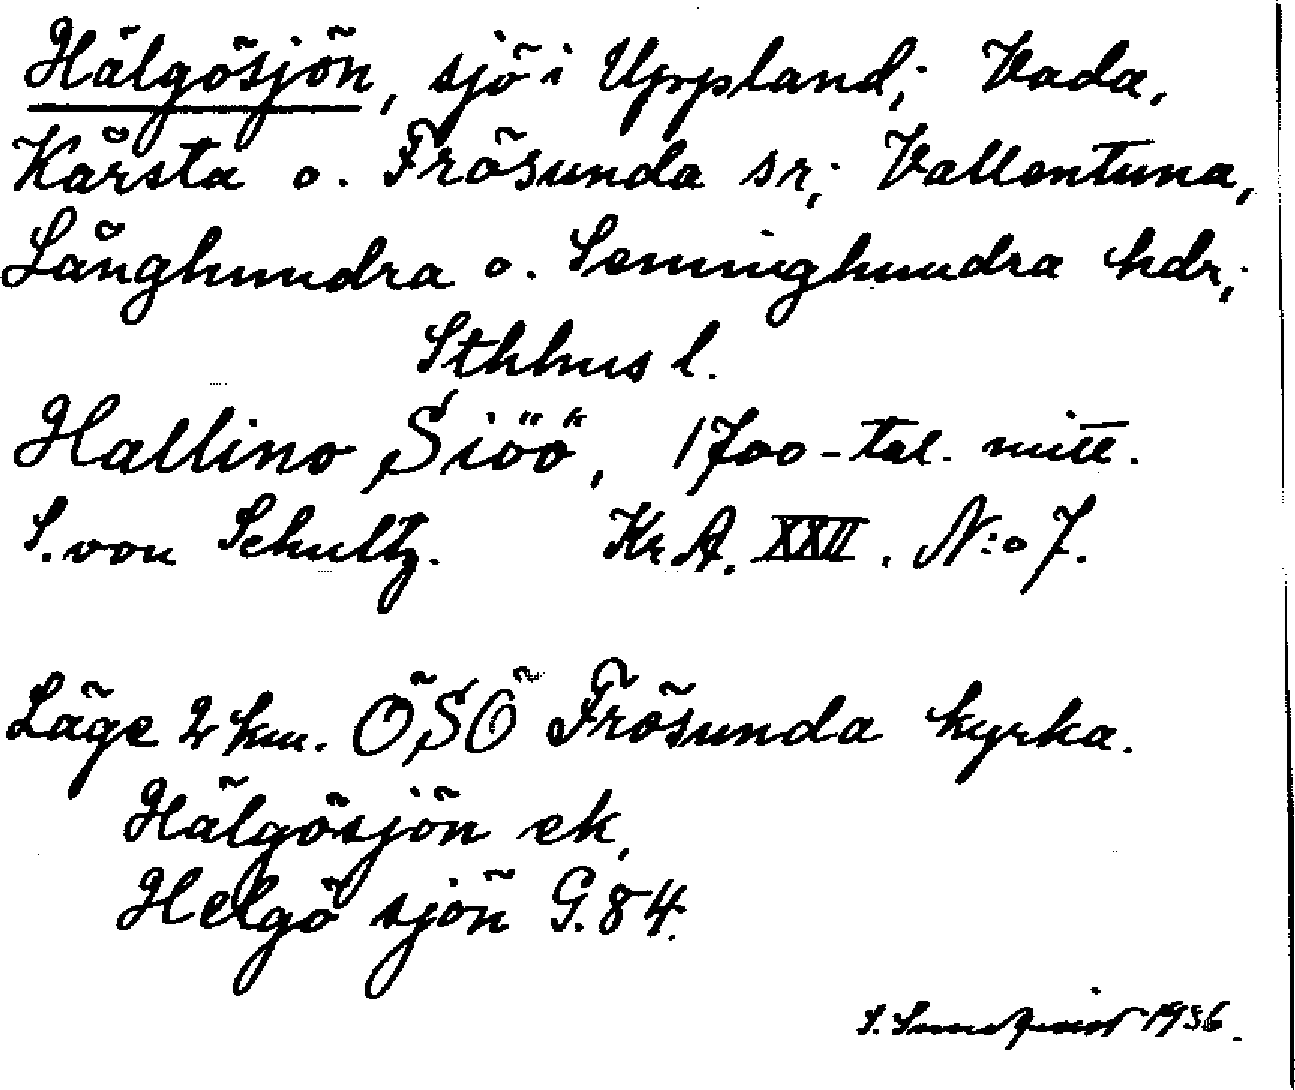 Hälgösjön, sjö i Uppland; Vada,
Kårsta o. Frösunda sr; Vallentuna,
Långhundra o. Seminghundra hdr;
Sthhus l.
Hallino Siöö, 1700-tal. mitt.
S. von Schultz. Kr. A. XXII. N:o 7.
Läge 2 km. ÖSÖ Frösunda kyrka.
Hälgösjön ek,
Helgö sjön G. 84.
S. Sundqvist 1936.